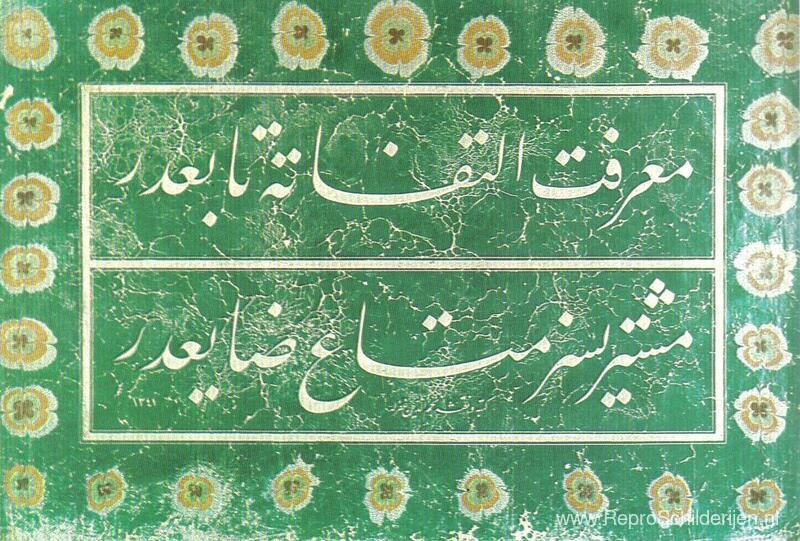 معرفت التفاته تابعدر
مشتريسز متاع ضايعدر
www.ReproSchilderijen.nl